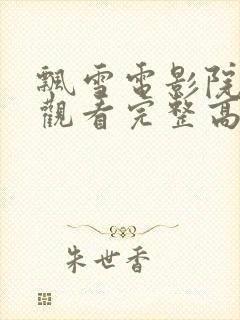 飄雪電影院
觀看完整高
朱世香